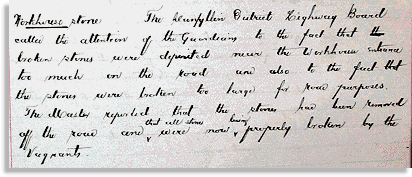 Workhouse stone The Llanfyllin District Highway Board
called the attention of the Guardians to the fact that the
broken stones were deposited near the Workhouse entrance
too much on the road and also to the fact that
the stones were broken too large for road purposes.
The Master reported that the stones had been removed
off the road and that all stones were now being properly broken by the
Vagrants.